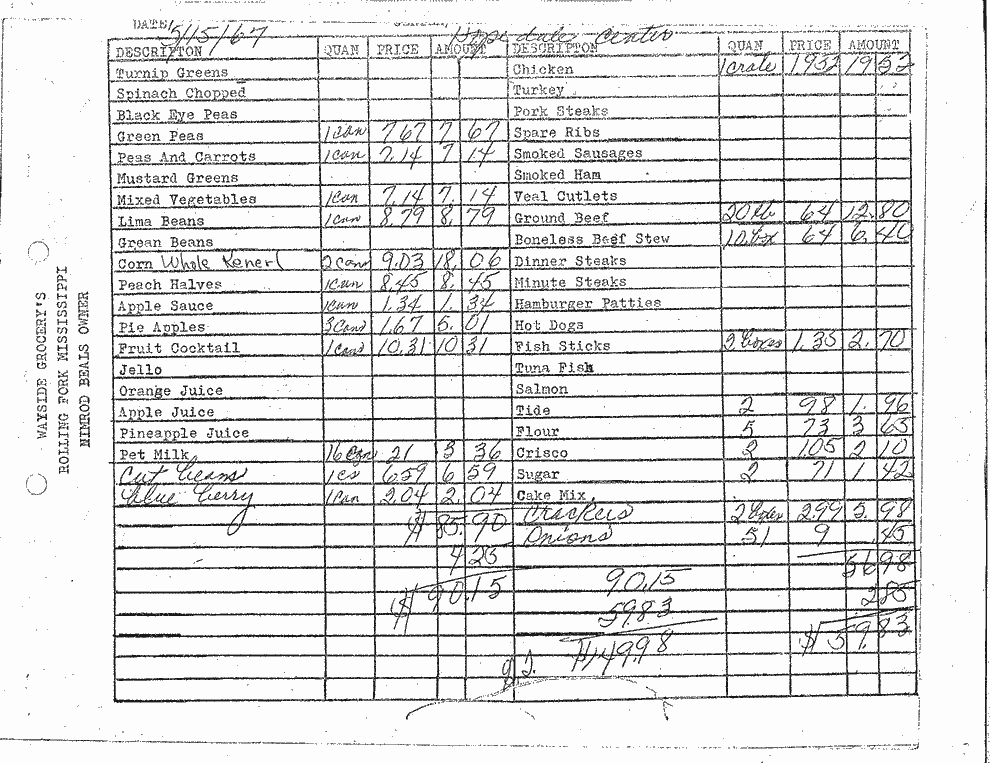 DATE 5/15/67 center
DESCRIPTON QUAN PRICE AMOUNT DESCRIPTON QUAN PRICE AMOUNT
Turnip Greens Chicken 1 crate 1952 19 52
Spinach Chopped Turkey
Black Eye Peas Pork Steaks
Green Peas 1 can 7.67 7. 67 Spare Ribs
Peas And Carrots 1 can 7.14 7 14 Smoked Sausages
Mustard Greens Smoked Ham
Mixed Vegetables 1 can 7.14 7. 14 Veal Cutlets
Lima Beans 1 can 8.79 8. 79 Ground Beef 20 lb 64 12.80
Grean Beans Boneless Beef Stew 10 box 64 6.40
Corn Whole Kenerl 2 Cans 9.03 18. 06 Dinner Steaks
Peach Halves 1 can 8.45 8. 45 Minute Steaks
Apple Sauce 1 can 1.34 1. 34 Hamburger Patties
Pie Apples 3 Cans 1.67 5. 01 Hot Dogs
Fruit Cocktail 1 Cans 10.31 10 31 Fish Sticks 2 boxes 1.35 2. 70
Jello Tuna Fish
Orange Juice Salmon
Apple Juice Tide 2 98 1. 96
Pineapple Juice Flour 5 73 3 65
Pet Milk 16 Can 21 3 36 Crisco 2 105 2 10
Cut beans 1 cs 659 6 59 Sugar 2 71 1 42
blue berry 1 can 2.04 2. 04 Cake Mix
$ 85.90 Crackers 2 boxes 2.99 5. 98
Onions 51 9 .45
4 25 56 98
$ 90.15 90.15 2 85
59.83 $ 59.83
$149.98
WAYSIDE GROCERY'S
ROLLING FORK MISSISSIPPI
NIMROD BEALS OWNER